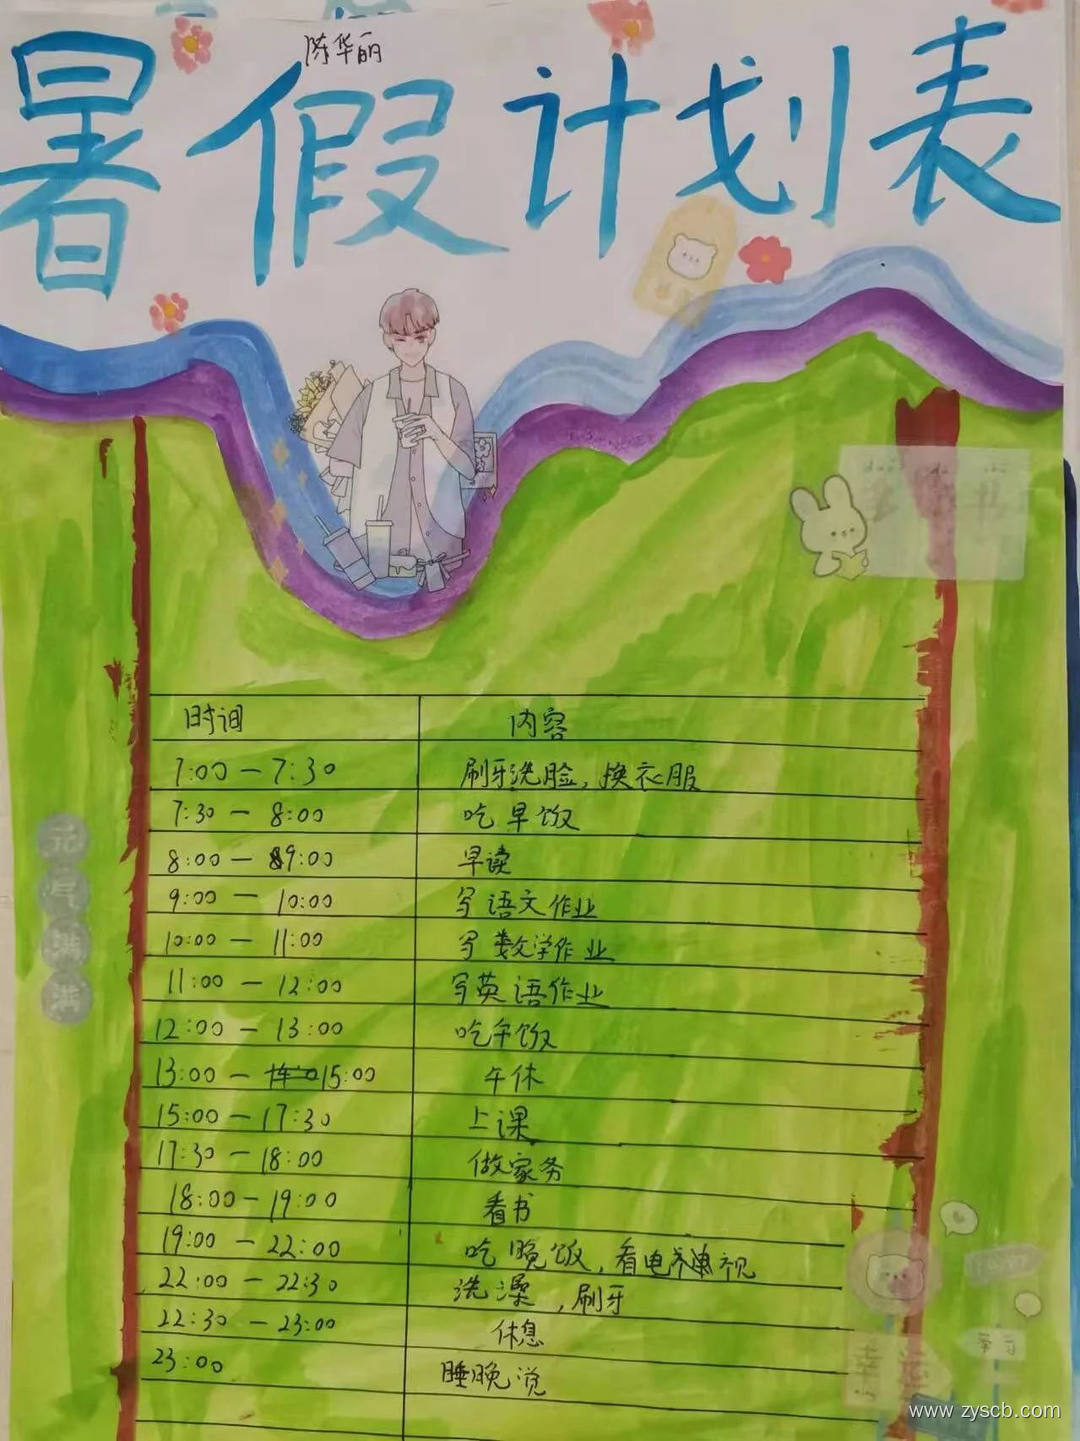 陈华丽
暑假计划表
时间 内容
7:00 — 7:30 刷牙洗脸,换衣服
7:30 — 8:00 吃早饭
8:00 — 9:00 早读
9:00 — 10:00 写语文作业
10:00 — 11:00 写数学作业
11:00 — 12:00 写英语作业
12:00 — 13:00 吃午饭
13:00 — 15:00 午休
15:00 — 17:30 上课
17:30 — 18:00 做家务
18:00 — 19:00 看书
19:00 — 22:00 吃晚饭,看电视
22:00 — 22:30 洗澡,刷牙
22:30 — 23:00 休息
23:00 睡晚说
元
满
满
www.zyscb.com